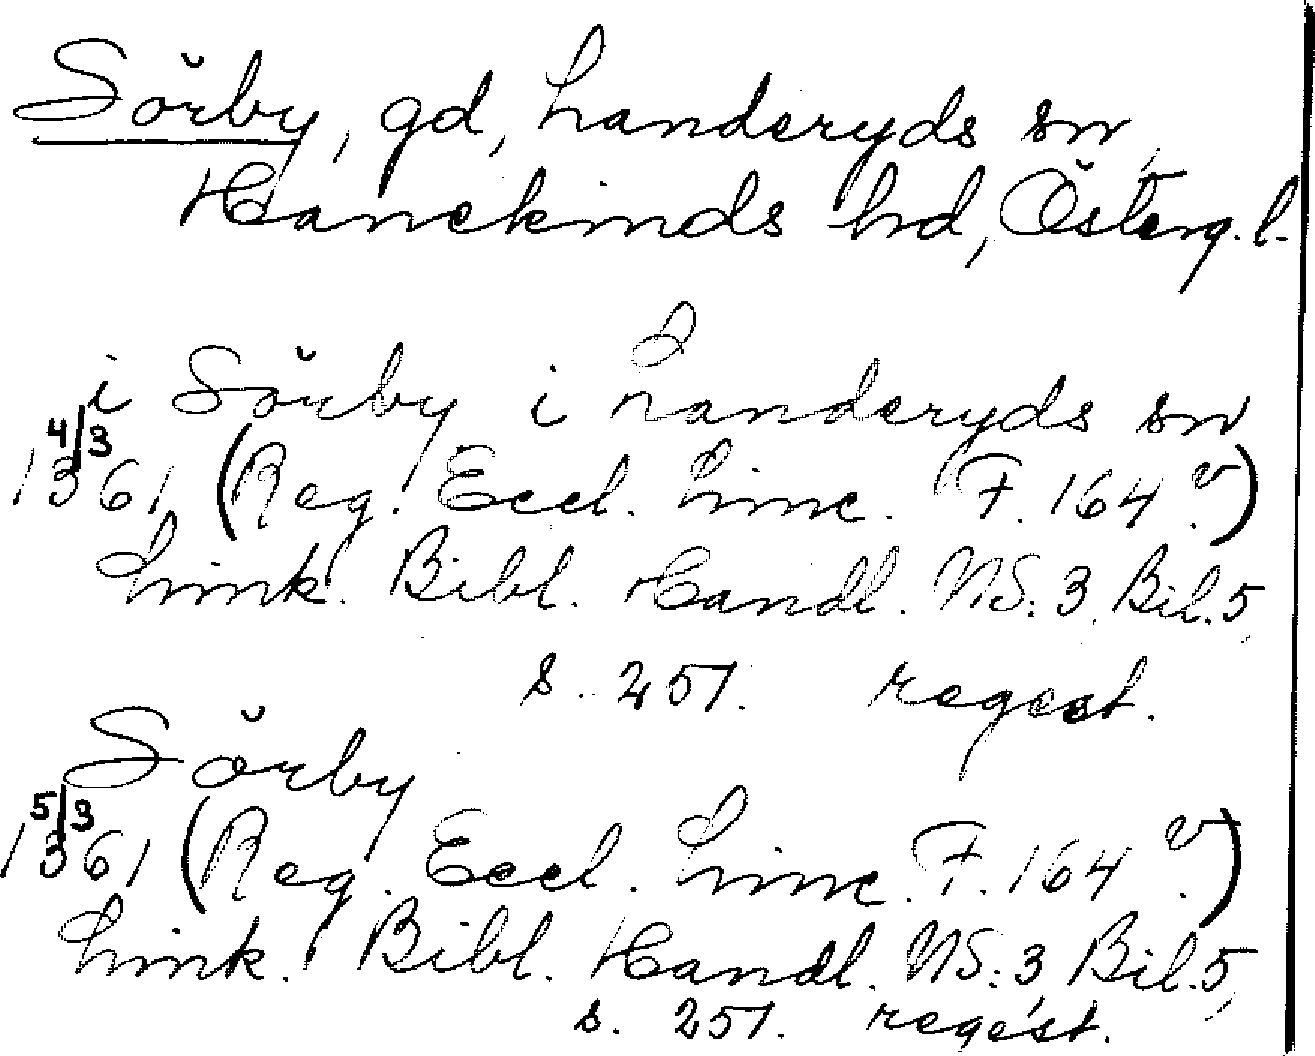 Sörby, gd, Landeryds sn,
Hanekinds hd, Österg. l.
i Sörby i Landeryds sn
4/3
1361 (Reg. Eccl. Linc. F. 164 v.)
Link. Bibl. Handl. NS: 3, Bil. 5,
s. 257. regest.
Sörby
5/3
1361 (Reg. Eccl. Linc. F. 164 v.)
Link. Bibl. Handl. NS: 3, Bil. 5,
s. 257. regest.